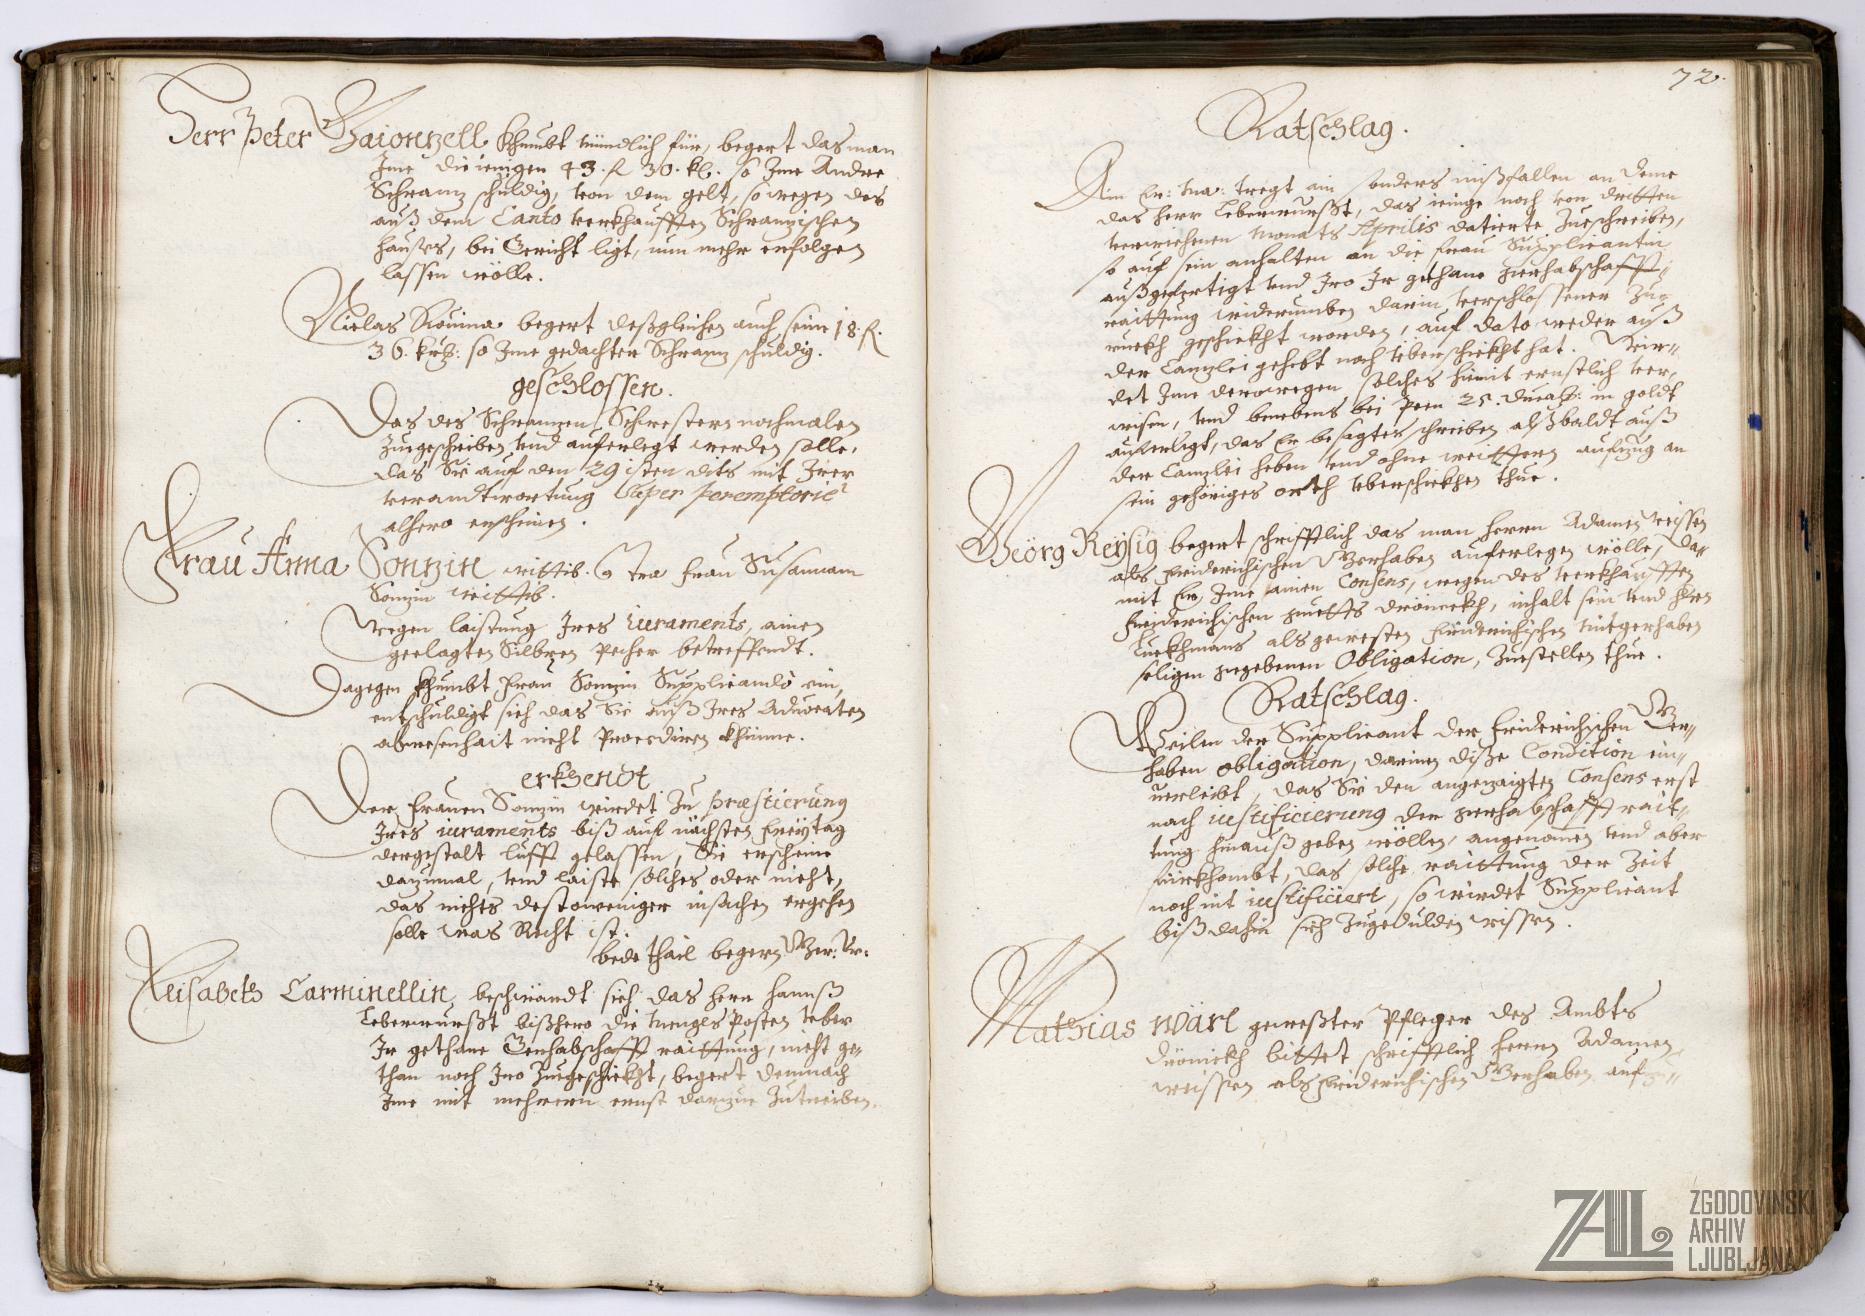 Herr Peter Baionzell khumbt mündlich für, begert das man
Ime die ienigen 43. fl 30. kr. so Ime Andre
Schranz schuldig, von dem gelt, so wegen des
auß dem Canto verkhaufften Schranzischen
haußes, bei Gericht ligt, nun mehr erfolgen
lassen wölle.
Niclas begert deßgleichen auch seine 18. fl.
36. krz: so Ime gedachter Schranz schuldig.
geschlossen.
Das des Schranzen Schwestern nochmalen
zugeschriben vnd auferlegt werden solle,
das Sie auf den 29isten dits mit Irer
verandtwortung super peremptorie
alhero erscheinen.
Frau Anna Sonzin wittib. Contra Frau Susannam
Sonzin wittib.
Wegen laistung Ires iuraments, ainen
geclagten Silbren Pecher betreffendt.
Dagegen khumbt Frau Sonzin Supplicando ein,
entschuldigt sich das Sie auß Ires Aduocaten
abwesenhait nicht Procediren khünne.
erkhendt
Der Frauen Sonzin wirdet zu præstierung
Ires iuraments biß auf nächsten Freytag
dergestalt lufft gelassen, Sie erscheine
dazumal, vnd laiste solches oder nicht,
das nichts destoweniger insachen ergehen
solle was Recht ist.
bede thail begern Ger: Vr:
Elisabeth Carminellin beschwärdt sich das herr Hannß
Leberwurßt bißhero die Mengls Posten vber
Ir gethane Gerhabschafft raittung, nicht ge-
than noch Iro zuegeschickht, begert demnach
Ime mit mehrern ernst darzue zutreiben.
72.
Ratschlag.
Ain Er: Ma: tregt ain sonders mißfallen an deme
das herr Leberwurßt, das ienige noch von dritten
verwichenen Monats Aprilis datierte Zueschreiben,
so auf sein anhalten an die Frau Supplicantin
außgefertigt vnd Iro Ir gethane Gerhabschafft-
raittung widerumben darin verschlossener zu-
ruckh geschickht worden, auf dato weder auß
der Canzlei gehebt noch vberschickht hat. Wir-
det Ime derowegen solches hiemit ernstlich ver-
wisen, vnd benebens bei Peen 25. Ducatz: in goldt
auferlegt, das Er besagtes schreiben alßbaldt auß
der Canzlei heben vnd ohne weittern aufzug an
sein gehöriges orth vberschickhen thue.
Geörg Reysig begert schrifftlich das man herrn Adamen Weissen
als Friderichischen Gerhaben auferlegen wölle, da-
mit Er Ime ainen Consens, wegen des verkhaufften
Friderichischen inhalt sein vnd herrn
Luckhmans als gewesten Friderichischen mitgerhaben
seligen gegebenen Obligation, zuestellen thue.
Ratschlag.
Weilen der Supplicant der Friderichischen Ger-
haben obligation, darinen diße Condition ein-
uerleibt, das Sie den angezaigten Consens erst
nach iustificierung der Gerhabschafft rait-
tung hinauß geben wöllen, angenomen vnd aber
fürkhombt, das solche raittung der Zeit
noch nit iustificiert, so wirdet Supplicant
biß dahin sich zugedulden wissen.
Mathias Wärl geweßter Pfleger des Ambts
bittet schrifftlich herrn Adamen
Weissen als Friderichischen Gerhaben auf
ZAL
ZGODOVINSKI
ARHIV
LJUBLJANA